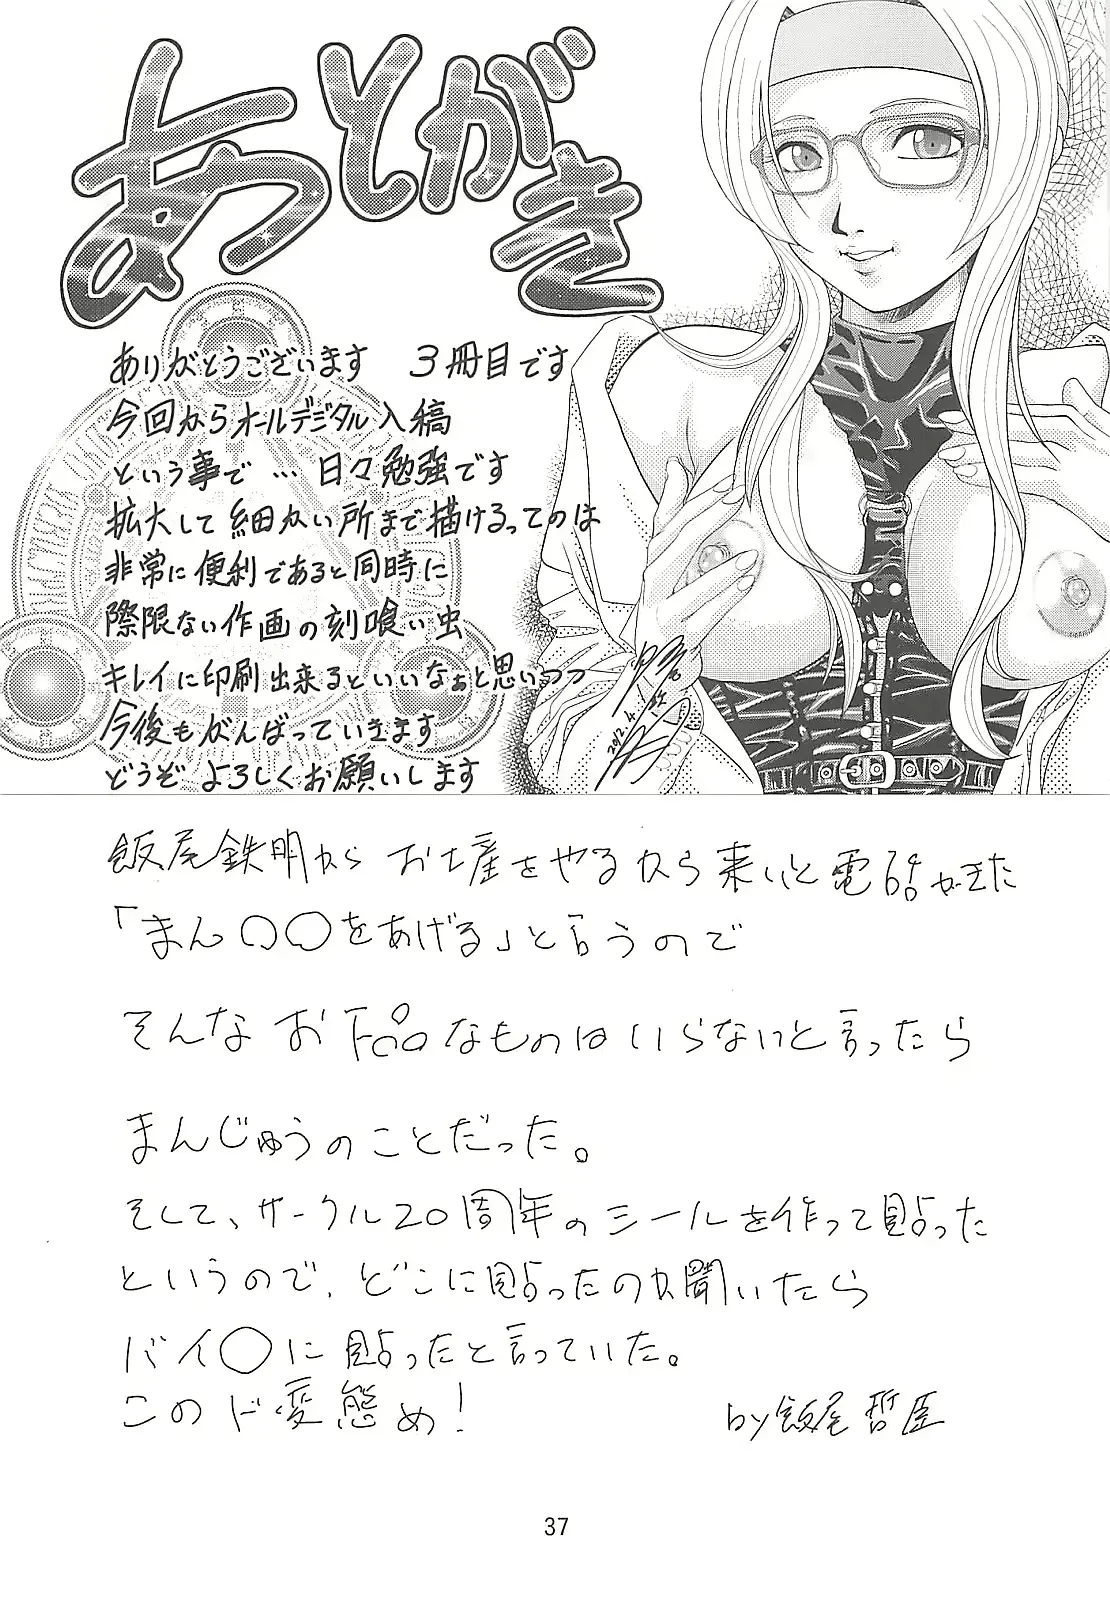 あとがき
ありがとうございます　3冊目です
今回からオールデジタル入稿
という事で…日々勉強です
拡大して細かい所まで描けるってのは
非常に便利であると同時に
際限ない作画の刻喰い虫
キレイに印刷出来るといいなぁと思いつつ
今後もがんばっていきます
どうぞよろしくお願いします
2012.4
飯尾鉄明から お土産をやるから来いと電話がきた
「まん〇〇をあげる」と言うので
そんなお下品なものはいらないと言ったら
まんじゅうのことだった。
そして、サークル20周年のシールを作って貼った
というので、どこに貼ったのか聞いたら
バイ〇に貼ったと言っていた。
このド変態め！
by飯尾哲臣
37